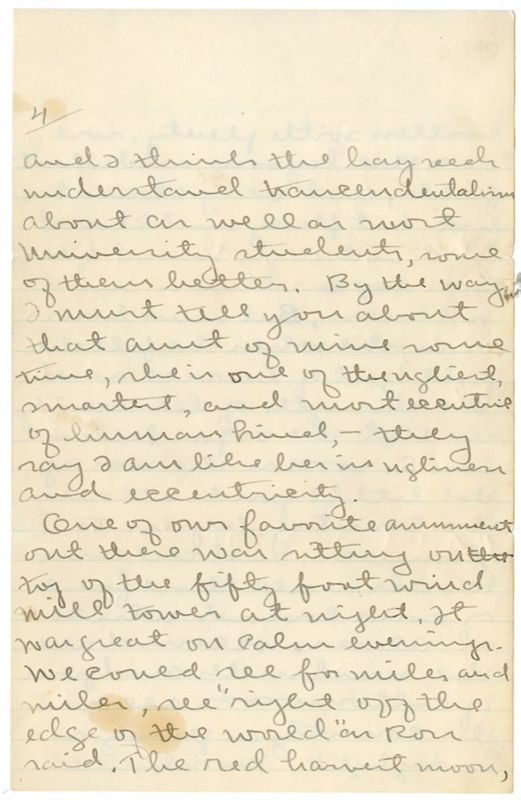 4
and I think the hayseeds
understand trancendentalism
about as well as most
University students, some
of them better. By the way,
I must tell you about
that aunt of mine some
time, she is one of the ugliest,
smartest, and most eccentric
of human kind, – they
say I am like her in ugliness
and eccentricity.
One of our favorite amusments
out there was sitting on the
top of the fifty foot wind
mill tower at night. It
was great on calm evenings.
We could see for miles and
miles, see "right off the
edge of the world" as Ross
said. The red harvest moon,